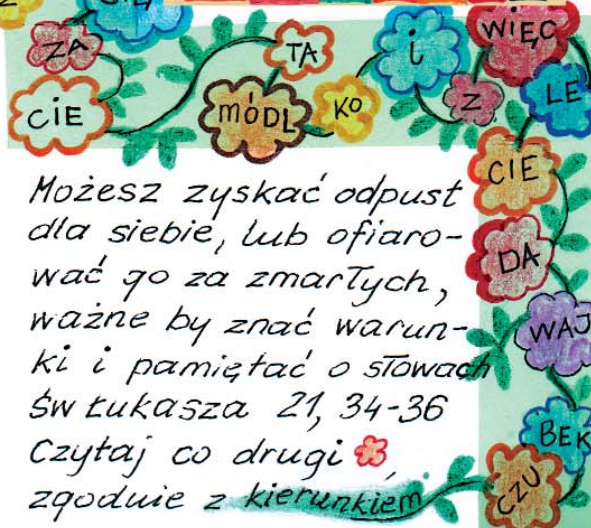 ZA
CIE
TA
MÓDL
KO
i
Z
WIĘC
LE
CIE
DA
WAJ
BEK
CZU
Możesz zyskać odpust
dla siebie, lub ofiaro-
wać go za zmarłych,
ważne by znać warun-
ki i pamiętać o słowach
Św Łukasza 21, 34-36
Czytaj co drugi
zgodnie z kierunkiem